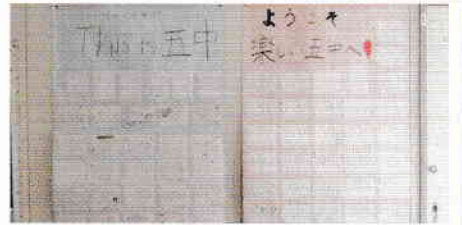 THIS is 五中
ようこそ
楽しい五中へ!